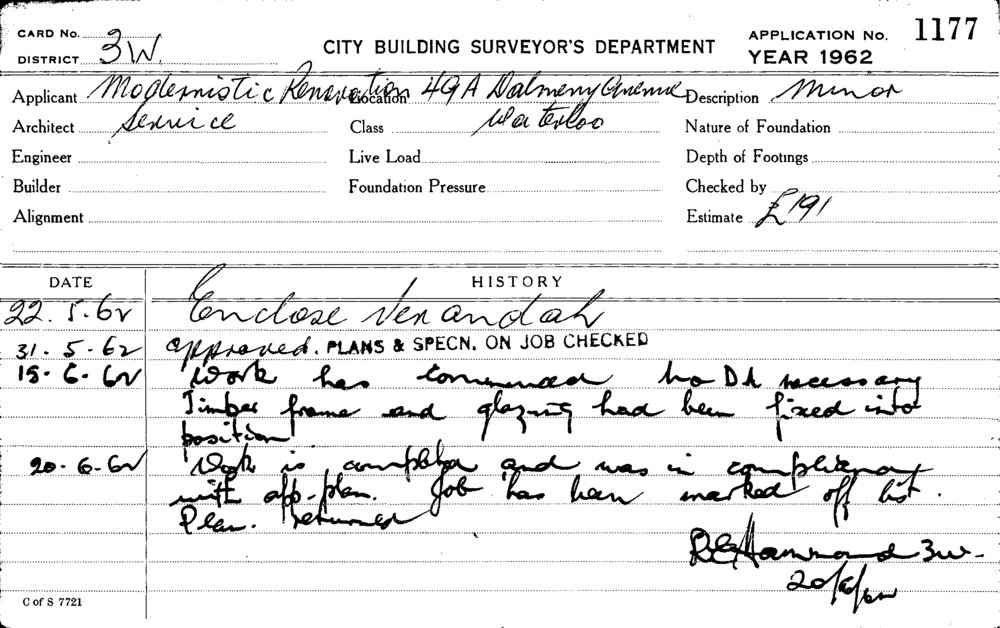 CARD No. APPLICATION No. 1177
DISTRICT 3W. CITY BUILDING SURVEYOR'S DEPARTMENT YEAR 1962
Applicant Modernistic Renovation Location 49A Dalmeny Avenue Description Minor
Architect Service Class Waterloo Nature of Foundation
Engineer Live Load Depth of Footings
Builder Foundation Pressure Checked by
Alignment Estimate £191
DATE HISTORY
22.5.62 Enclose Verandah
31.5.62 approved. PLANS & SPECN. ON JOB CHECKED
15.6.62 Work has commenced no DA necessary
Timber frame and glazing had been fixed into
position
20.6.62 Work is completed and was in compliance
with app-plan. Job has been marked off list.
Plan. returned
R E Hammond 3W.
20/6/62
C of S 7721